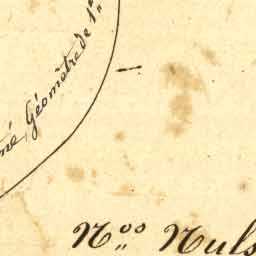 né, Géomètre de 1re
Nos Nuls